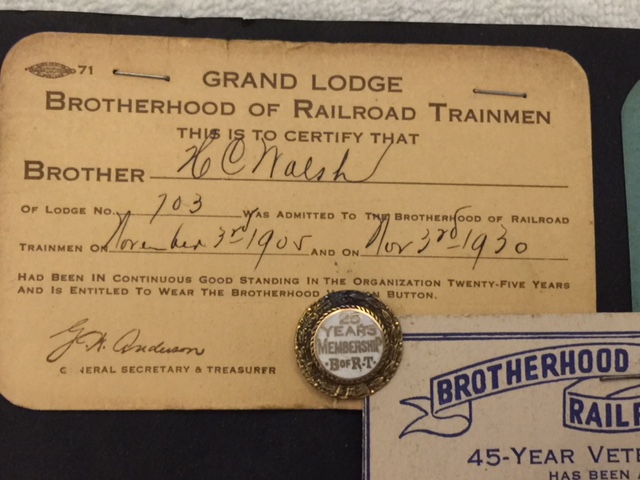 71
GRAND LODGE
BROTHERHOOD OF RAILROAD TRAINMEN
THIS IS TO CERTIFY THAT
BROTHER H C Walsh
OF LODGE NO. 703 WAS ADMITTED TO THE BROTHERHOOD OF RAILROAD
TRAINMEN ON November 3rd 1905 AND ON Nov 3rd 1930
HAD BEEN IN CONTINUOUS GOOD STANDING IN THE ORGANIZATION TWENTY-FIVE YEARS
AND IS ENTITLED TO WEAR THE BROTHERHOOD BUTTON.
Anderson
GENERAL SECRETARY & TREASURER
25
YEARS
MEMBERSHIP
B OF R.T.
BROTHERHOOD
RAILR
45-YEAR VETE
HAS BEEN A